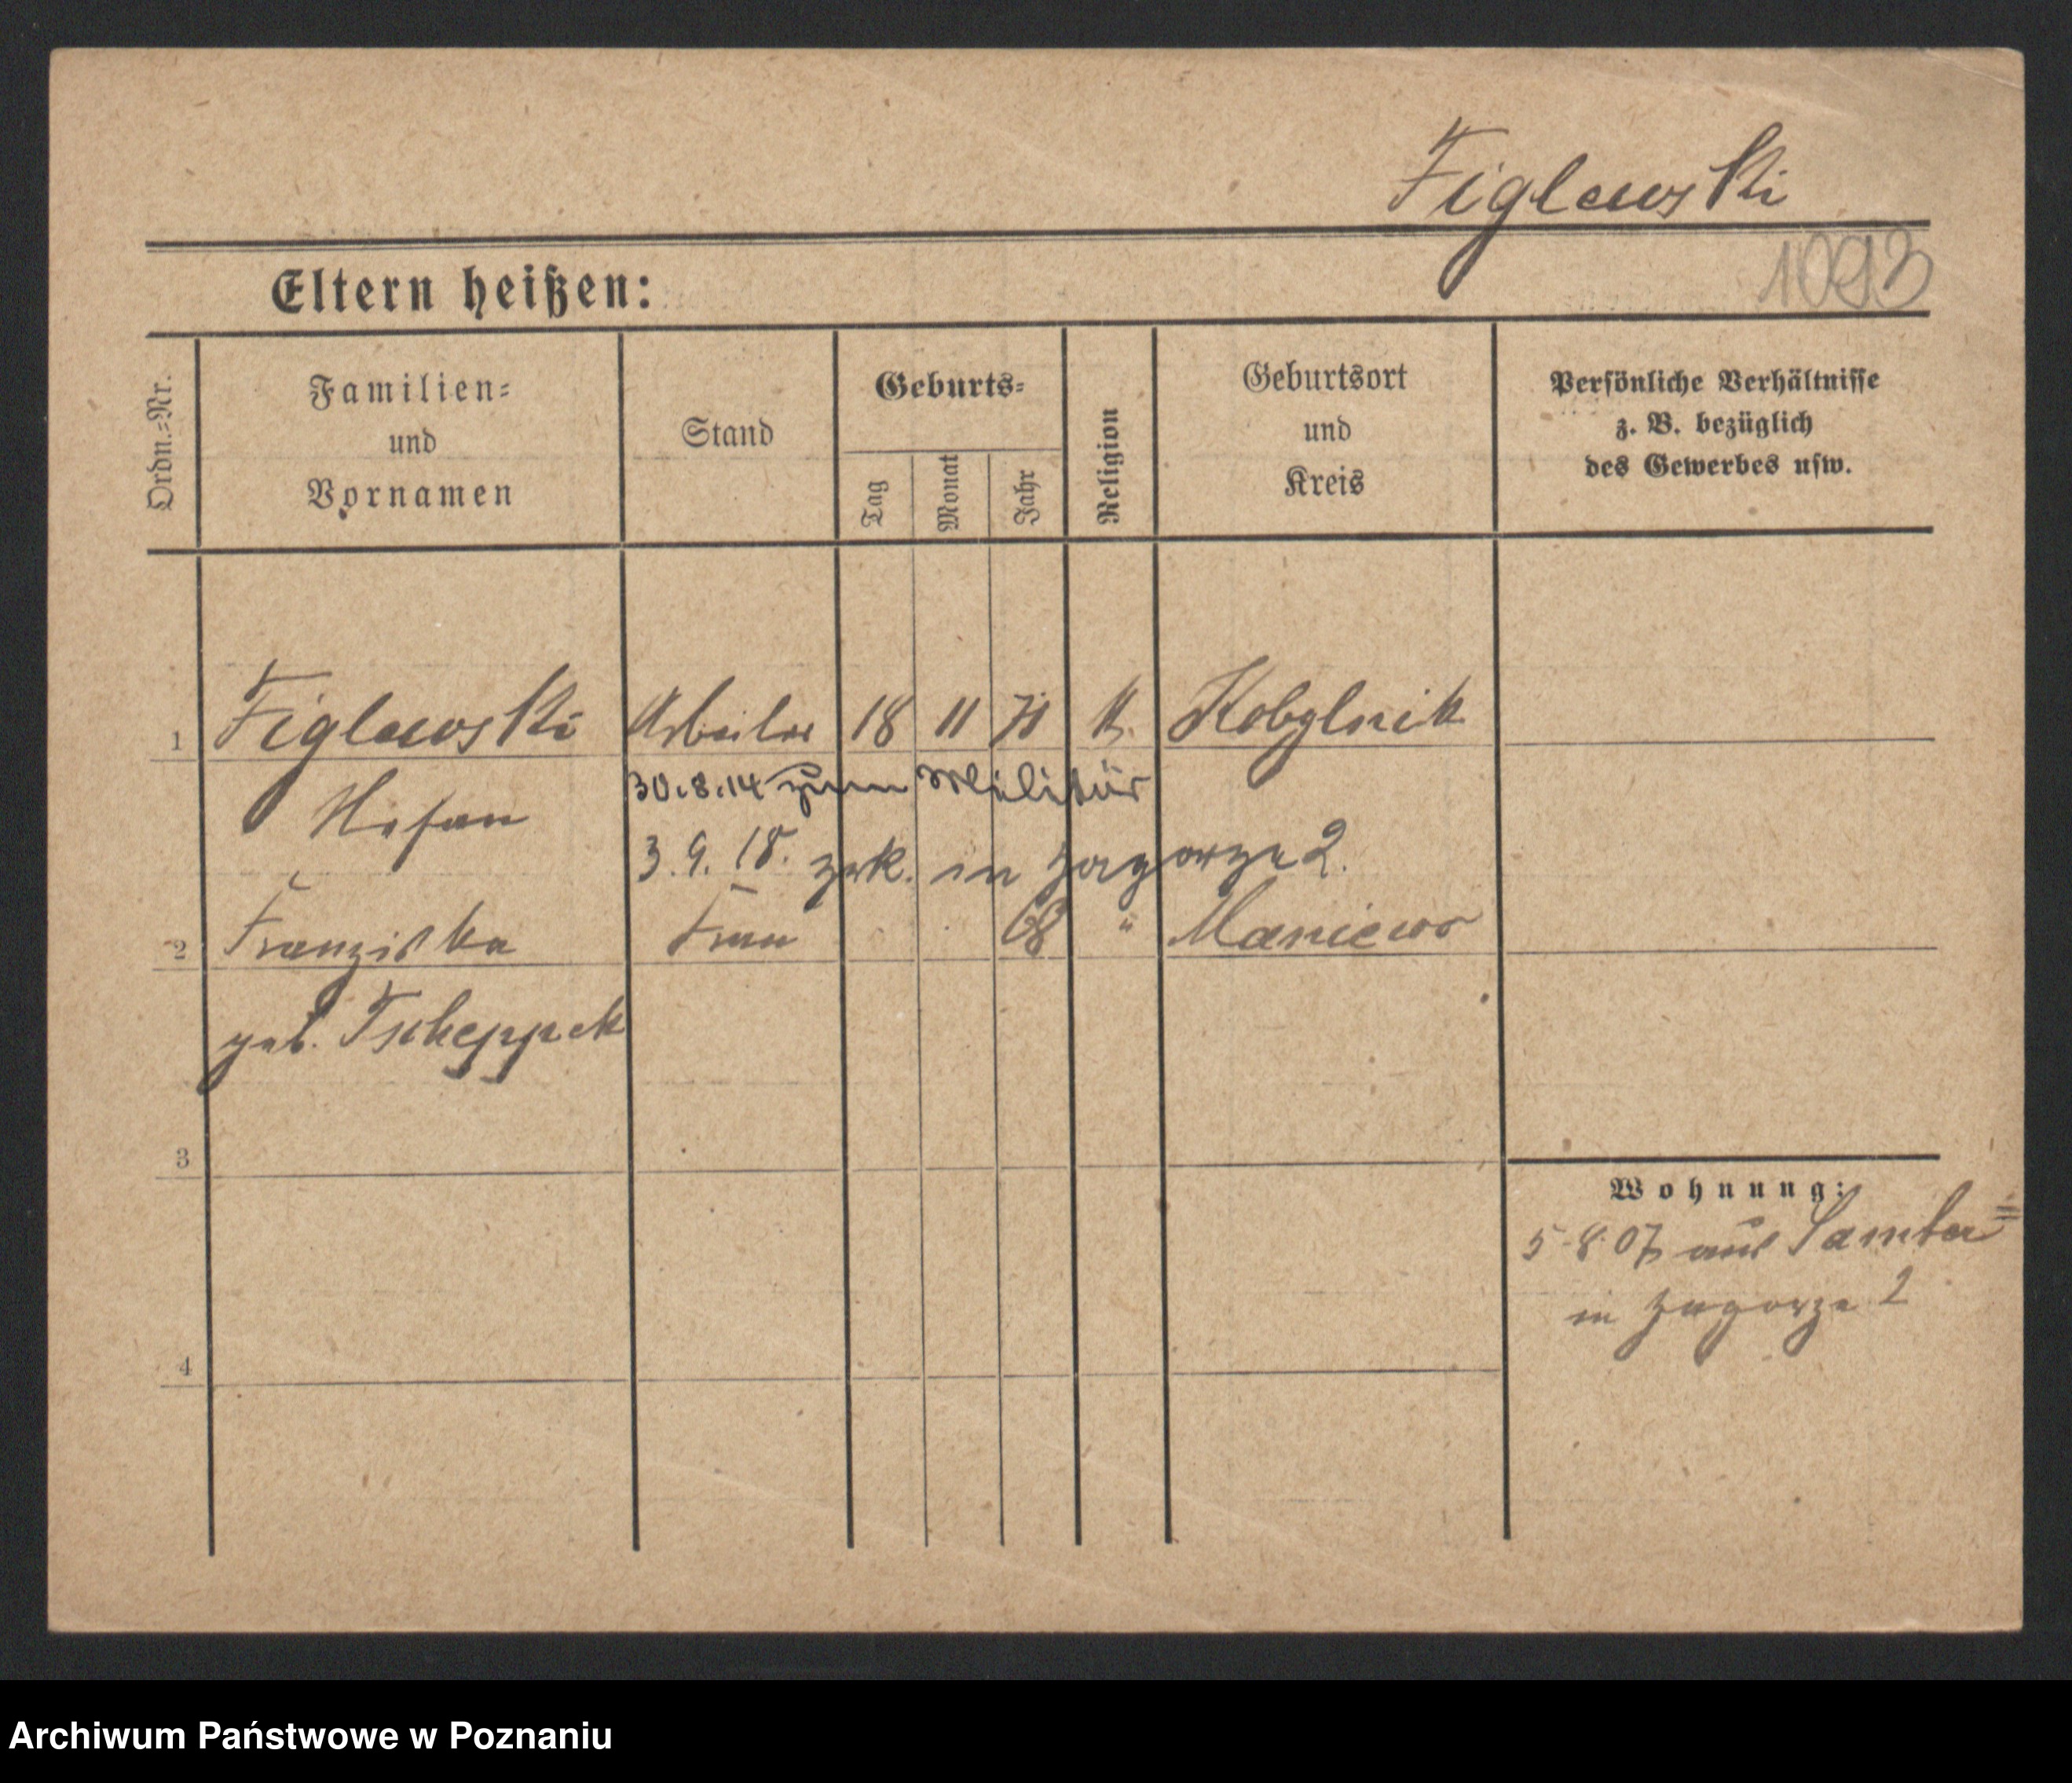 Figlewski
1093
Eltern heißen:
Ordn.=Nr. Familien= und Vornamen Stand Geburts= Tag Monat Jahr Religion Geburtsort und Kreis Persönliche Verhältnisse z. B. bezüglich des Gewerbes usw.
1 Figlewski Arbeiter 18 11 71 k. Kobylnik
30.8.14 zum Militär
Stefan
3.9.18. zrk. in Zagorze 2.
2 Franziska Frau 68 " Maniewo
geb. Tscheppek
3
Wohnung:
5-8-07 aus Samter=
in Zagorze 2
4
Archiwum Państwowe w Poznaniu